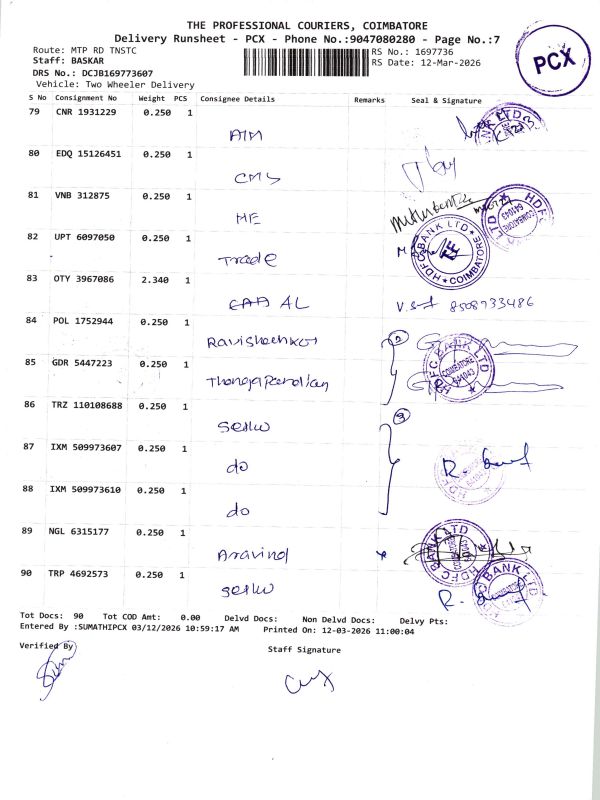 THE PROFESSIONAL COURIERS, COIMBATORE
Delivery Runsheet - PCX - Phone No.:9047080280 - Page No.:7
Route: MTP RD TNSTC
RS No.: 1697736
Staff: BASKAR
RS Date: 12-Mar-2026
DRS No.: DCJB169773607
Vehicle: Two Wheeler Delivery
PCX
S No Consignment No Weight PCS Consignee Details Remarks Seal & Signature
79 CNR 1931229 0.250 1
ATM
80 EDQ 15126451 0.250 1
CMS
81 VNB 312875 0.250 1
ME
82 UPT 6097050 0.250 1
Trade
HDFC BANK LTD COIMBATORE
83 OTY 3967086 2.340 1
AL
8508733486
84 POL 1752944 0.250 1
85 GDR 5447223 0.250 1
Thangapandian
HDFC BANK LTD COIMBATORE 641043
86 TRZ 110108688 0.250 1
87 IXM 509973607 0.250 1
do
88 IXM 509973610 0.250 1
do
89 NGL 6315177 0.250 1
Aravind
HDFC BANK LTD
90 TRP 4692573 0.250 1
Tot Docs: 90 Tot COD Amt: 0.00 Delvd Docs: Non Delvd Docs: Delvy Pts:
Entered By :SUMATHIPCX 03/12/2026 10:59:17 AM Printed On: 12-03-2026 11:00:04
Verified By
Staff Signature